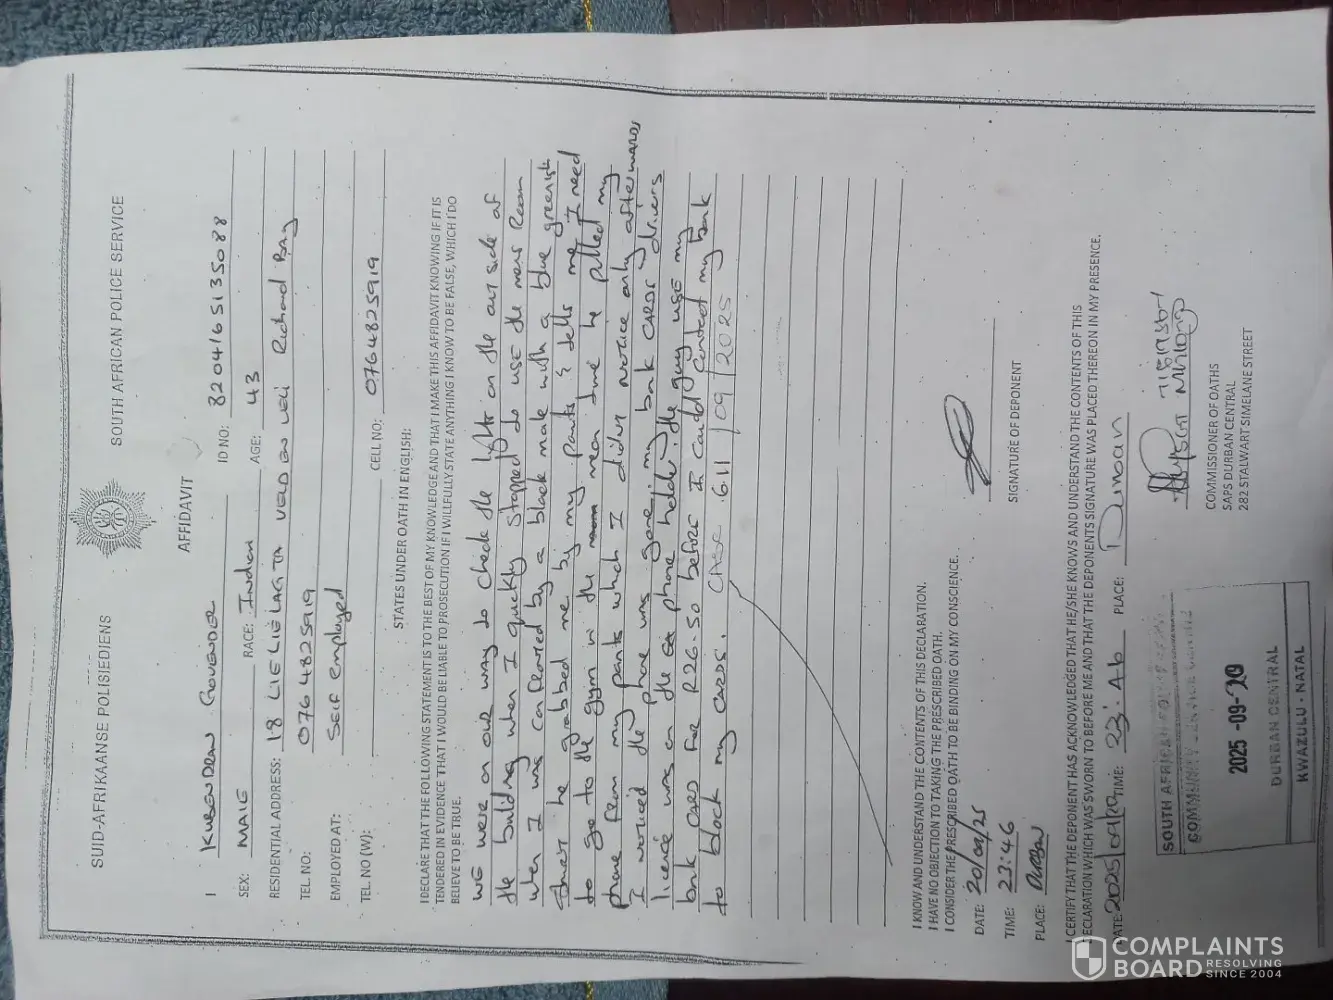 SUID-AFRIKAANSE POLISIEDIENS SOUTH AFRICAN POLICE SERVICE
AFFIDAVIT
I KUBENDRAN GOVENDER ID NO: 8204165135088
SEX: MALE RACE: Indian AGE: 43
RESIDENTIAL ADDRESS: 18 LIE LIE LAGTA VELD EN VLEI Richard Bay
TEL NO: 0764825919
EMPLOYED AT: Self Employed
TEL NO (W): CELL NO: 0764825919
STATES UNDER OATH IN ENGLISH:
I DECLARE THAT THE FOLLOWING STATEMENT IS TO THE BEST OF MY KNOWLEDGE AND THAT I MAKE THIS AFFIDAVIT KNOWING IF IT IS
TENDERED IN EVIDENCE THAT I WOULD BE LIABLE TO PROSECUTION IF I WILLFULLY STATE ANYTHING I KNOW TO BE FALSE, WHICH I DO
BELIEVE TO BE TRUE.
WE were on our way to check the lights on the out side of
the building when I quickly stopped to use the mens Room
when I was confronted by a black male with a blue greenish
shirt he grabbed me by my pants & tells me I need
to go to the gym in the mean time he pulled my
phone from my pants which I didnt notice only afterwards
I noticed the phone was gone, my bank CARDS drivers
licence was on the phone holder. the guy use my
bank CARD for R26-50 before I could contact my bank
to block my CARDS. CASE 611/09/2025
I KNOW AND UNDERSTAND THE CONTENTS OF THIS DECLARATION.
I HAVE NO OBJECTION TO TAKING THE PRESCRIBED OATH.
I CONSIDER THE PRESCRIBED OATH TO BE BINDING ON MY CONSCIENCE.
DATE: 20/09/25
TIME: 23:46
PLACE: Durban
SIGNATURE OF DEPONENT
I CERTIFY THAT THE DEPONENT HAS ACKNOWLEDGED THAT HE/SHE KNOWS AND UNDERSTAND THE CONTENTS OF THIS
DECLARATION WHICH WAS SWORN TO BEFORE ME AND THAT THE DEPONENTS SIGNATURE WAS PLACED THEREON IN MY PRESENCE.
DATE 2025/09/20 TIME: 23:46 PLACE: Durban
COMMISSIONER OF OATHS
SAPS DURBAN CENTRAL
282 STALWART SIMELANE STREET
SOUTH AFRICAN POLICE SERVICE
COMMUNITY SERVICE CENTRE
2025 -09- 20
DURBAN CENTRAL
KWAZULU - NATAL
COMPLAINTS
BOARD RESOLVING
SINCE 2004